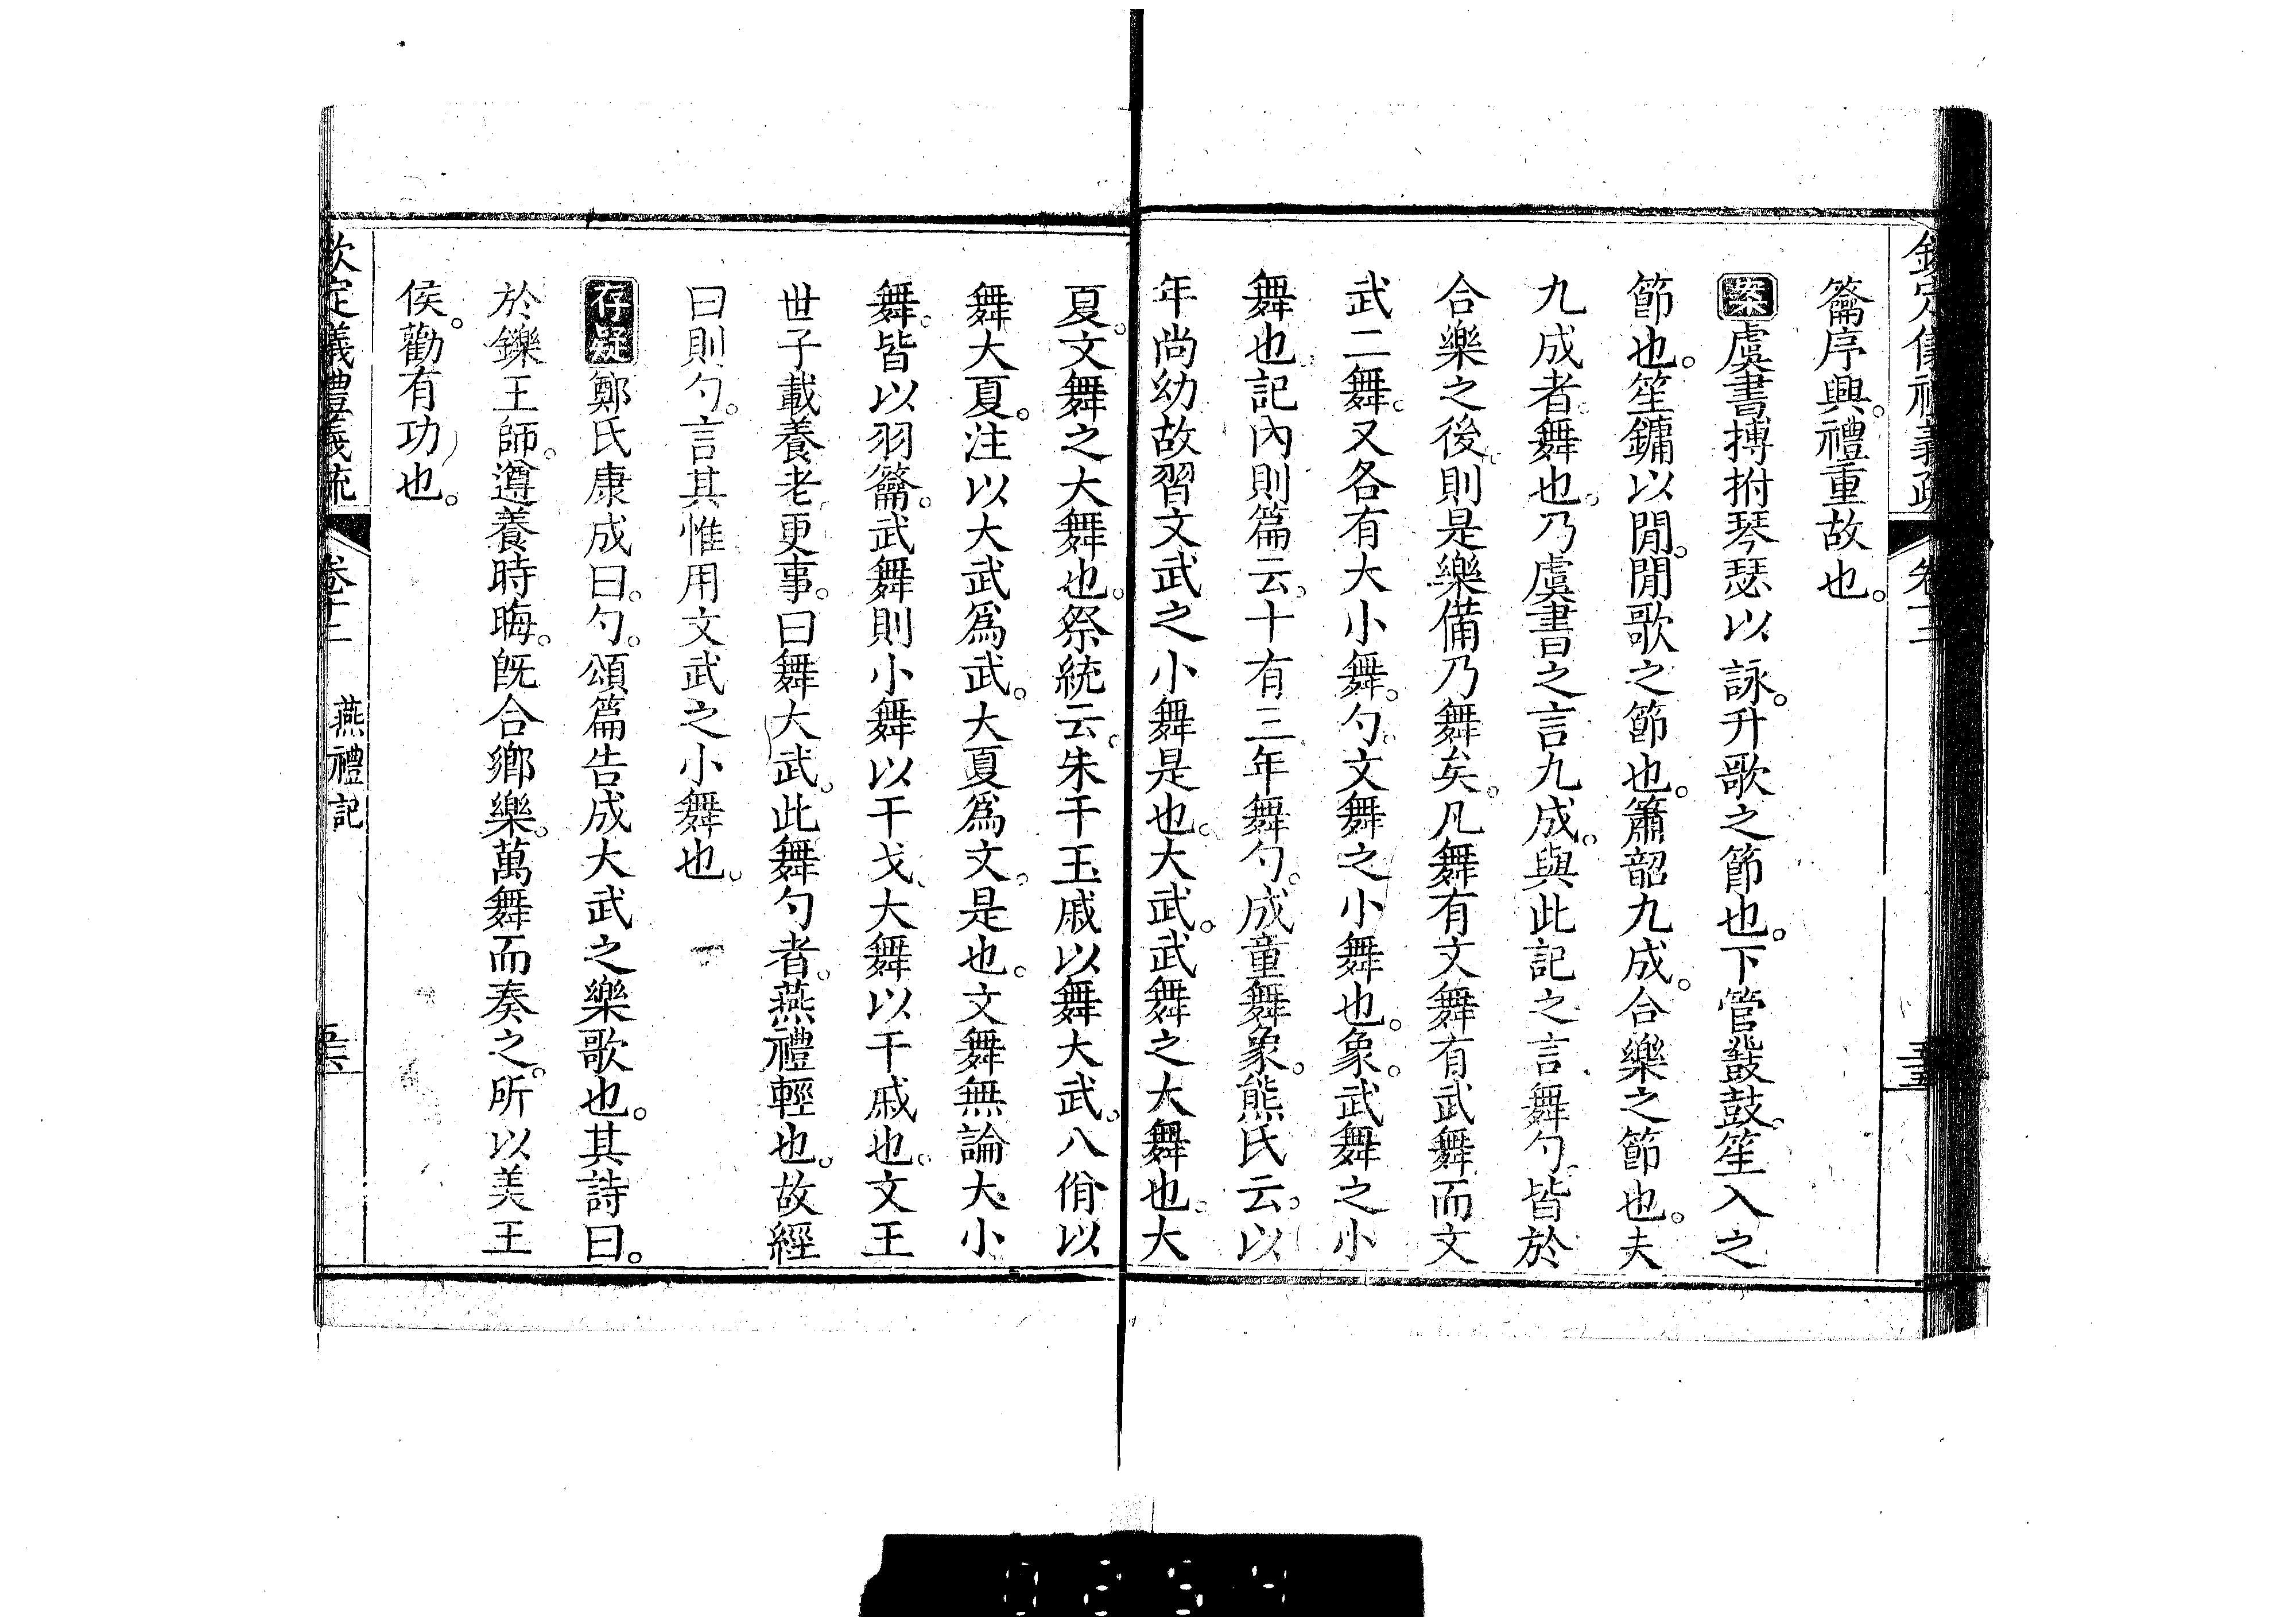 欽定儀禮義疏 卷十二
籥序興。禮重故也。
案虞書搏拊琴瑟以詠。升歌之節也。下管鼗鼓。笙入之
節也。笙鏞以閒。閒歌之節也。簫韶九成。合樂之節也。夫
九成者。舞也。乃虞書之言九成。與此記之言舞勺。皆於
合樂之後。則是樂備乃舞矣。凡舞有文舞有武舞。而文
武二舞。又各有大小舞。勺。文舞之小舞也。象。武舞之小
舞也。記內則篇云。十有三年舞勺。成童舞象。熊氏云。以
年尚幼故習文武之小舞是也。大武。武舞之大舞也。大
夏。文舞之大舞也。祭統云。朱干玉戚以舞大武。八佾以
舞大夏。注以大武爲武。大夏爲文。是也。文舞無論大小
舞。皆以羽籥。武舞則小舞以干戈、大舞以干戚也。文王
世子載養老更事。曰舞大武。此舞勺者。燕禮輕也。故經
曰則勺。言其惟用文武之小舞也。
存疑鄭氏康成曰。勺。頌篇告成大武之樂歌也。其詩曰。
於鑠王師。遵養時晦。旣合鄉樂。萬舞而奏之。所以美王
侯。勸有功也。
欽定儀禮義疏 卷十二 燕禮記